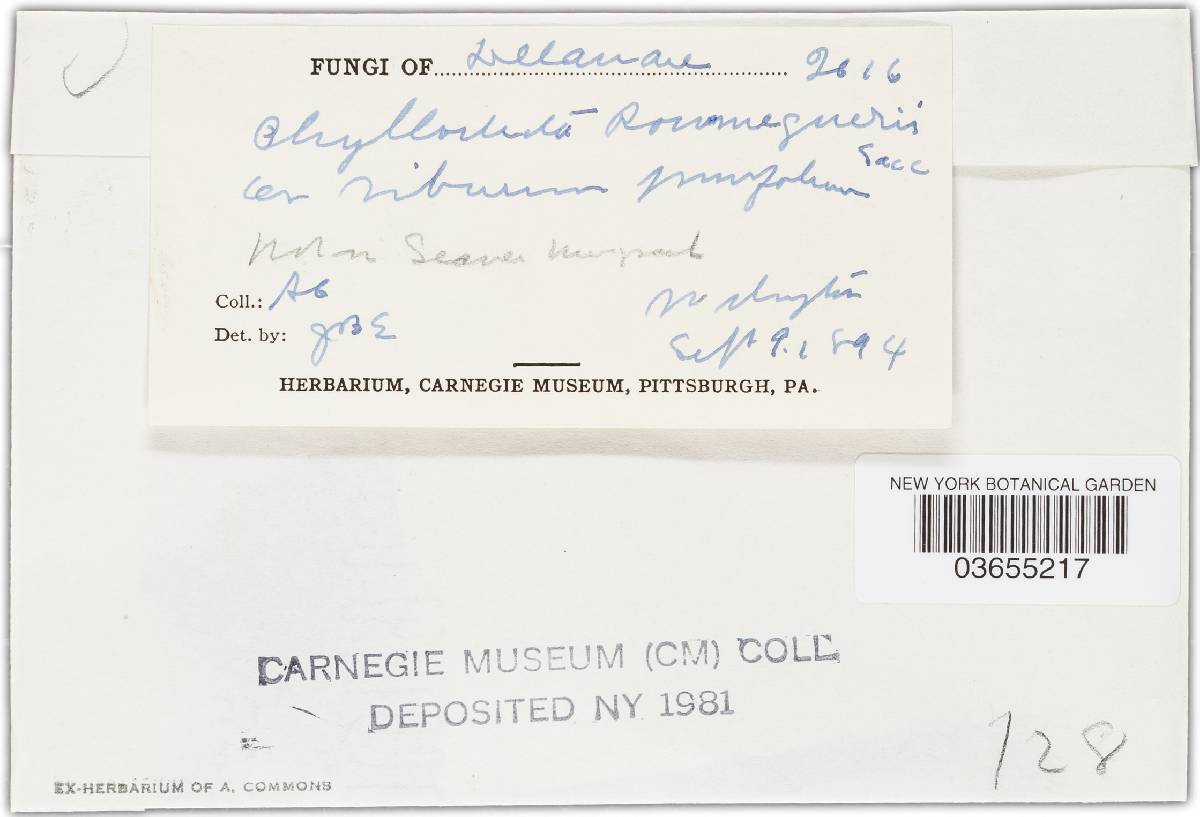 FUNGI OF Delaware 2616
Phyllosticta Roumeguerii
Sacc
on Viburnum prunifolium
Not in Seaver
Coll.: AC
Wilmington
Det. by: JBE
Sept 9. 1894
HERBARIUM, CARNEGIE MUSEUM, PITTSBURGH, PA.
NEW YORK BOTANICAL GARDEN
03655217
CARNEGIE MUSEUM (CM) COLL.
DEPOSITED NY 1981
128
EX-HERBARIUM OF A. COMMONS